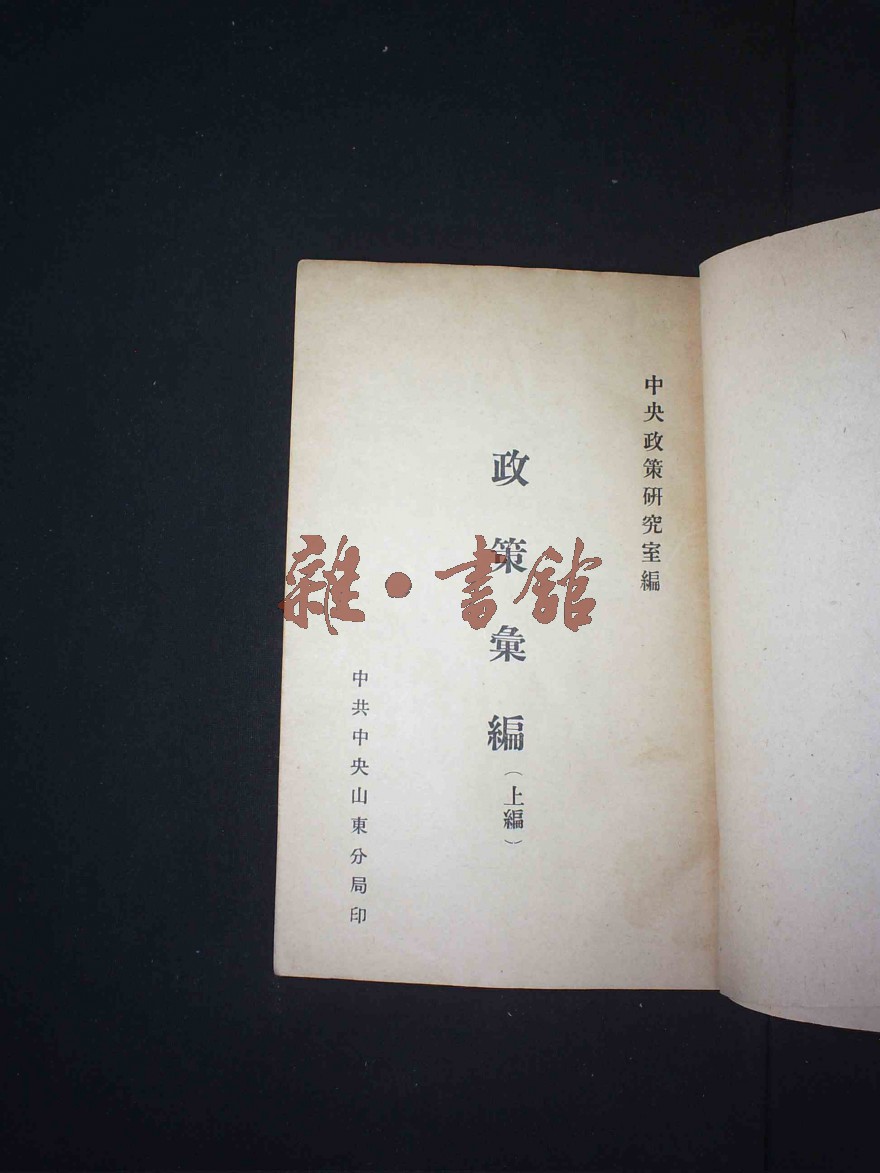 中央政策研究室編
政策彙編（上編）
中共中央山東分局印
雜·書館